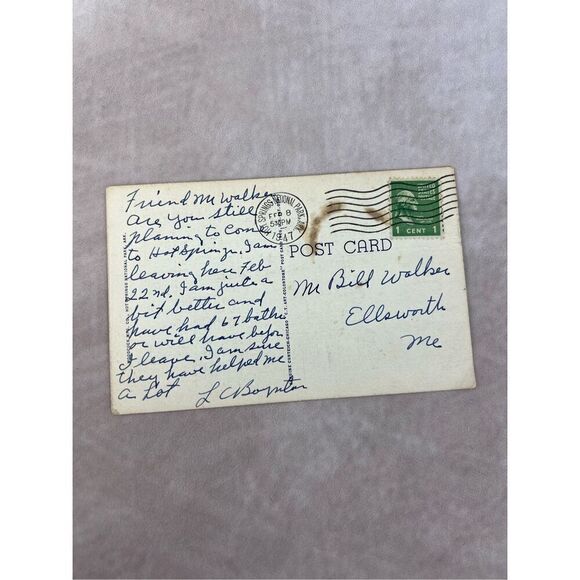 Friend Mr Walker
Are you still
planing to Come
to Hot Springs. I am
leaving here Feb
22nd. I am quite a
bit better and
have had 67 baths
or will have before
I leave. I am sure
they have helped me
a Lot
L C Boynton
HOT SPRINGS NATIONAL PARK, ARK.
FEB 8
5 PM
1947
UNITED STATES POSTAGE
1 CENT 1
POST CARD
Mr Bill Walker
Ellsworth
Me